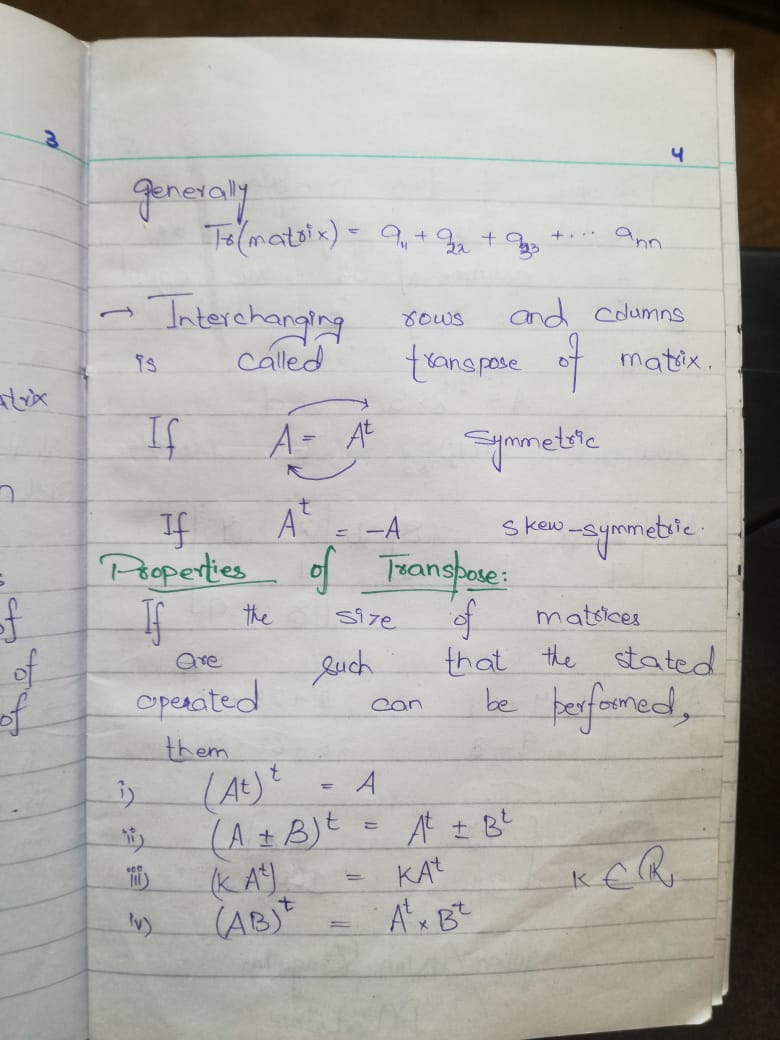 3
4
generally
Tr(matrix) = a₁₁ + a₂₂ + a₃₃ + ... aₙₙ
→ Interchanging rows and columns
is called transpose of matrix.
atrix
If A = Aᵗ Symmetric
n
If Aᵗ = -A skew-symmetric.
Properties of Transpose:
of If the size of matrices
of are such that the stated
of operated can be performed,
them
i) (At)ᵗ = A
ii) (A ± B)ᵗ = Aᵗ ± Bᵗ
iii) (K Aᵗ) = KAᵗ K ∈ ℝ
iv) (AB)ᵗ = Aᵗ × Bᵗ